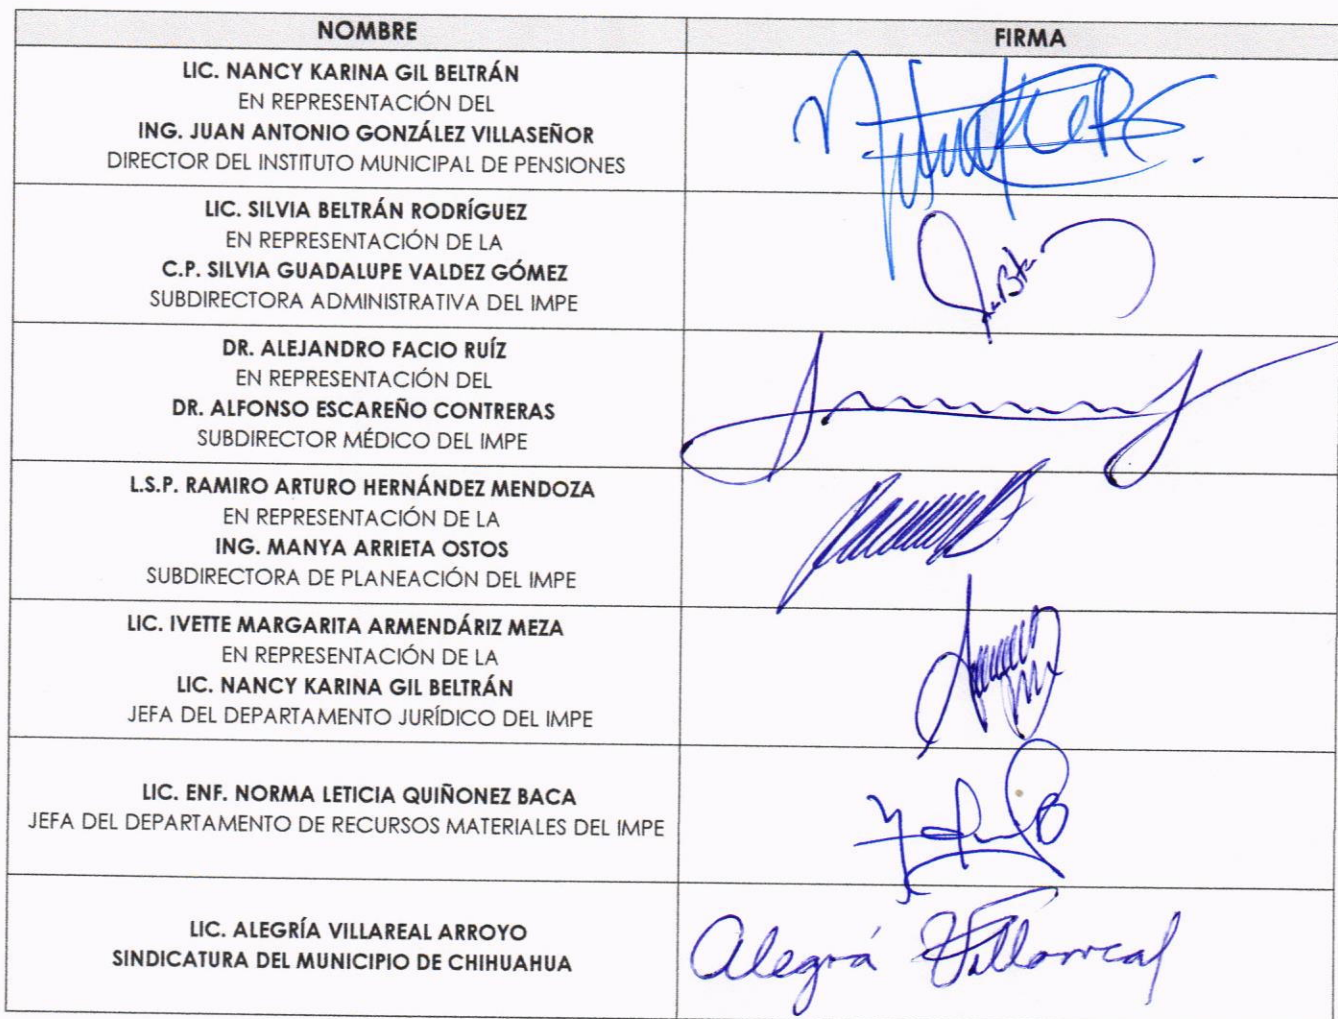 NOMBRE FIRMA
LIC. NANCY KARINA GIL BELTRÁN
EN REPRESENTACIÓN DEL
ING. JUAN ANTONIO GONZÁLEZ VILLASEÑOR
DIRECTOR DEL INSTITUTO MUNICIPAL DE PENSIONES
LIC. SILVIA BELTRÁN RODRÍGUEZ
EN REPRESENTACIÓN DE LA
C.P. SILVIA GUADALUPE VALDEZ GÓMEZ
SUBDIRECTORA ADMINISTRATIVA DEL IMPE
DR. ALEJANDRO FACIO RUÍZ
EN REPRESENTACIÓN DEL
DR. ALFONSO ESCAREÑO CONTRERAS
SUBDIRECTOR MÉDICO DEL IMPE
L.S.P. RAMIRO ARTURO HERNÁNDEZ MENDOZA
EN REPRESENTACIÓN DE LA
ING. MANYA ARRIETA OSTOS
SUBDIRECTORA DE PLANEACIÓN DEL IMPE
LIC. IVETTE MARGARITA ARMENDÁRIZ MEZA
EN REPRESENTACIÓN DE LA
LIC. NANCY KARINA GIL BELTRÁN
JEFA DEL DEPARTAMENTO JURÍDICO DEL IMPE
LIC. ENF. NORMA LETICIA QUIÑONEZ BACA
JEFA DEL DEPARTAMENTO DE RECURSOS MATERIALES DEL IMPE
LIC. ALEGRÍA VILLAREAL ARROYO
SINDICATURA DEL MUNICIPIO DE CHIHUAHUA
Alegría Villarreal